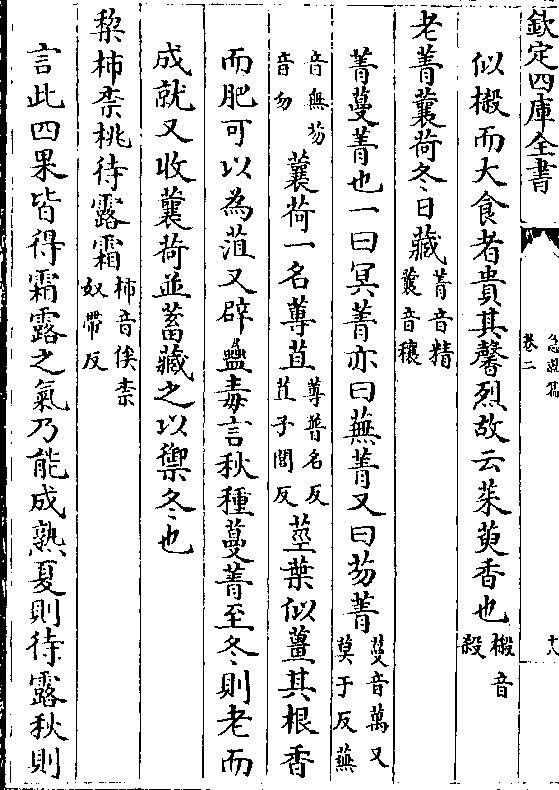 欽定四庫全書
急就篇
卷二
十八
似樧而大食者貴其馨烈故云茱萸香也樧音
殺
老菁蘘荷冬日藏菁音精
蘘音穰
菁蔓菁也一曰冥菁亦曰蕪菁又曰芴菁蔓音萬又
莫于反蕪
音無芴
音勿蘘荷一名蓴苴蓴普名反
苴子閭反莖葉似薑其根香
而肥可以為葅又辟蠱毒言秋種蔓菁至冬則老而
成就又收蘘荷並蓄藏之以禦冬也
棃柿柰桃待露霜柿音俟柰
奴帶反
言此四果皆得霜露之氣乃能成熟夏則待露秋則